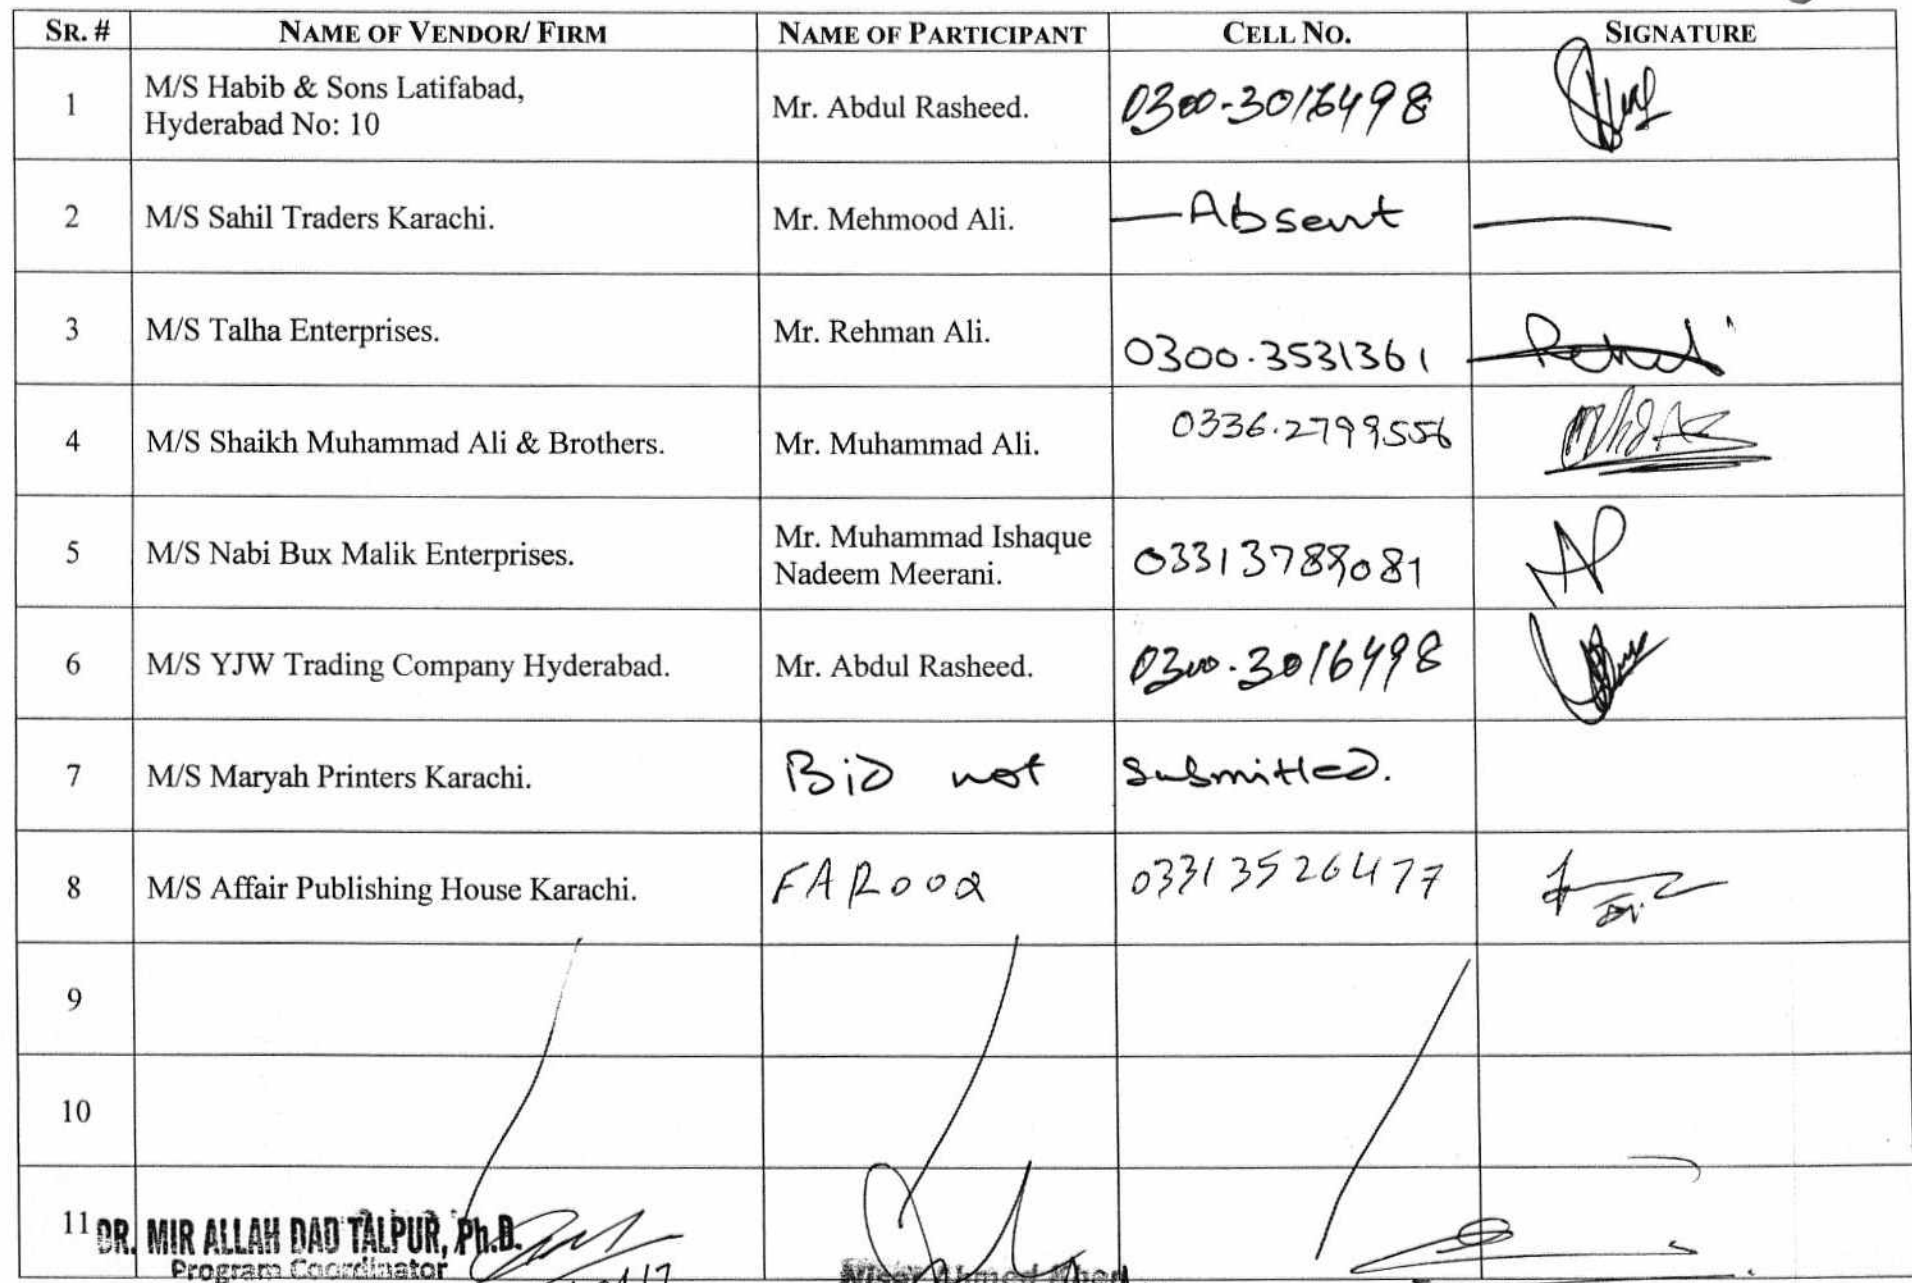 SR. # NAME OF VENDOR/ FIRM NAME OF PARTICIPANT CELL NO. SIGNATURE
1 M/S Habib & Sons Latifabad, Hyderabad No: 10 Mr. Abdul Rasheed. 0300-3016498
2 M/S Sahil Traders Karachi. Mr. Mehmood Ali. —Absent —
3 M/S Talha Enterprises. Mr. Rehman Ali. 0300.3531361
4 M/S Shaikh Muhammad Ali & Brothers. Mr. Muhammad Ali. 0336.2799556
5 M/S Nabi Bux Malik Enterprises. Mr. Muhammad Ishaque Nadeem Meerani.
6 M/S YJW Trading Company Hyderabad. Mr. Abdul Rasheed. 0300-3016498
7 M/S Maryah Printers Karachi. Bid not submitted.
8 M/S Affair Publishing House Karachi. FAROOQ 03313526477
9
10
11
DR. MIR ALLAH DAD TALPUR, Ph.D.
Program Coordinator
Nisar Ahmed Khan